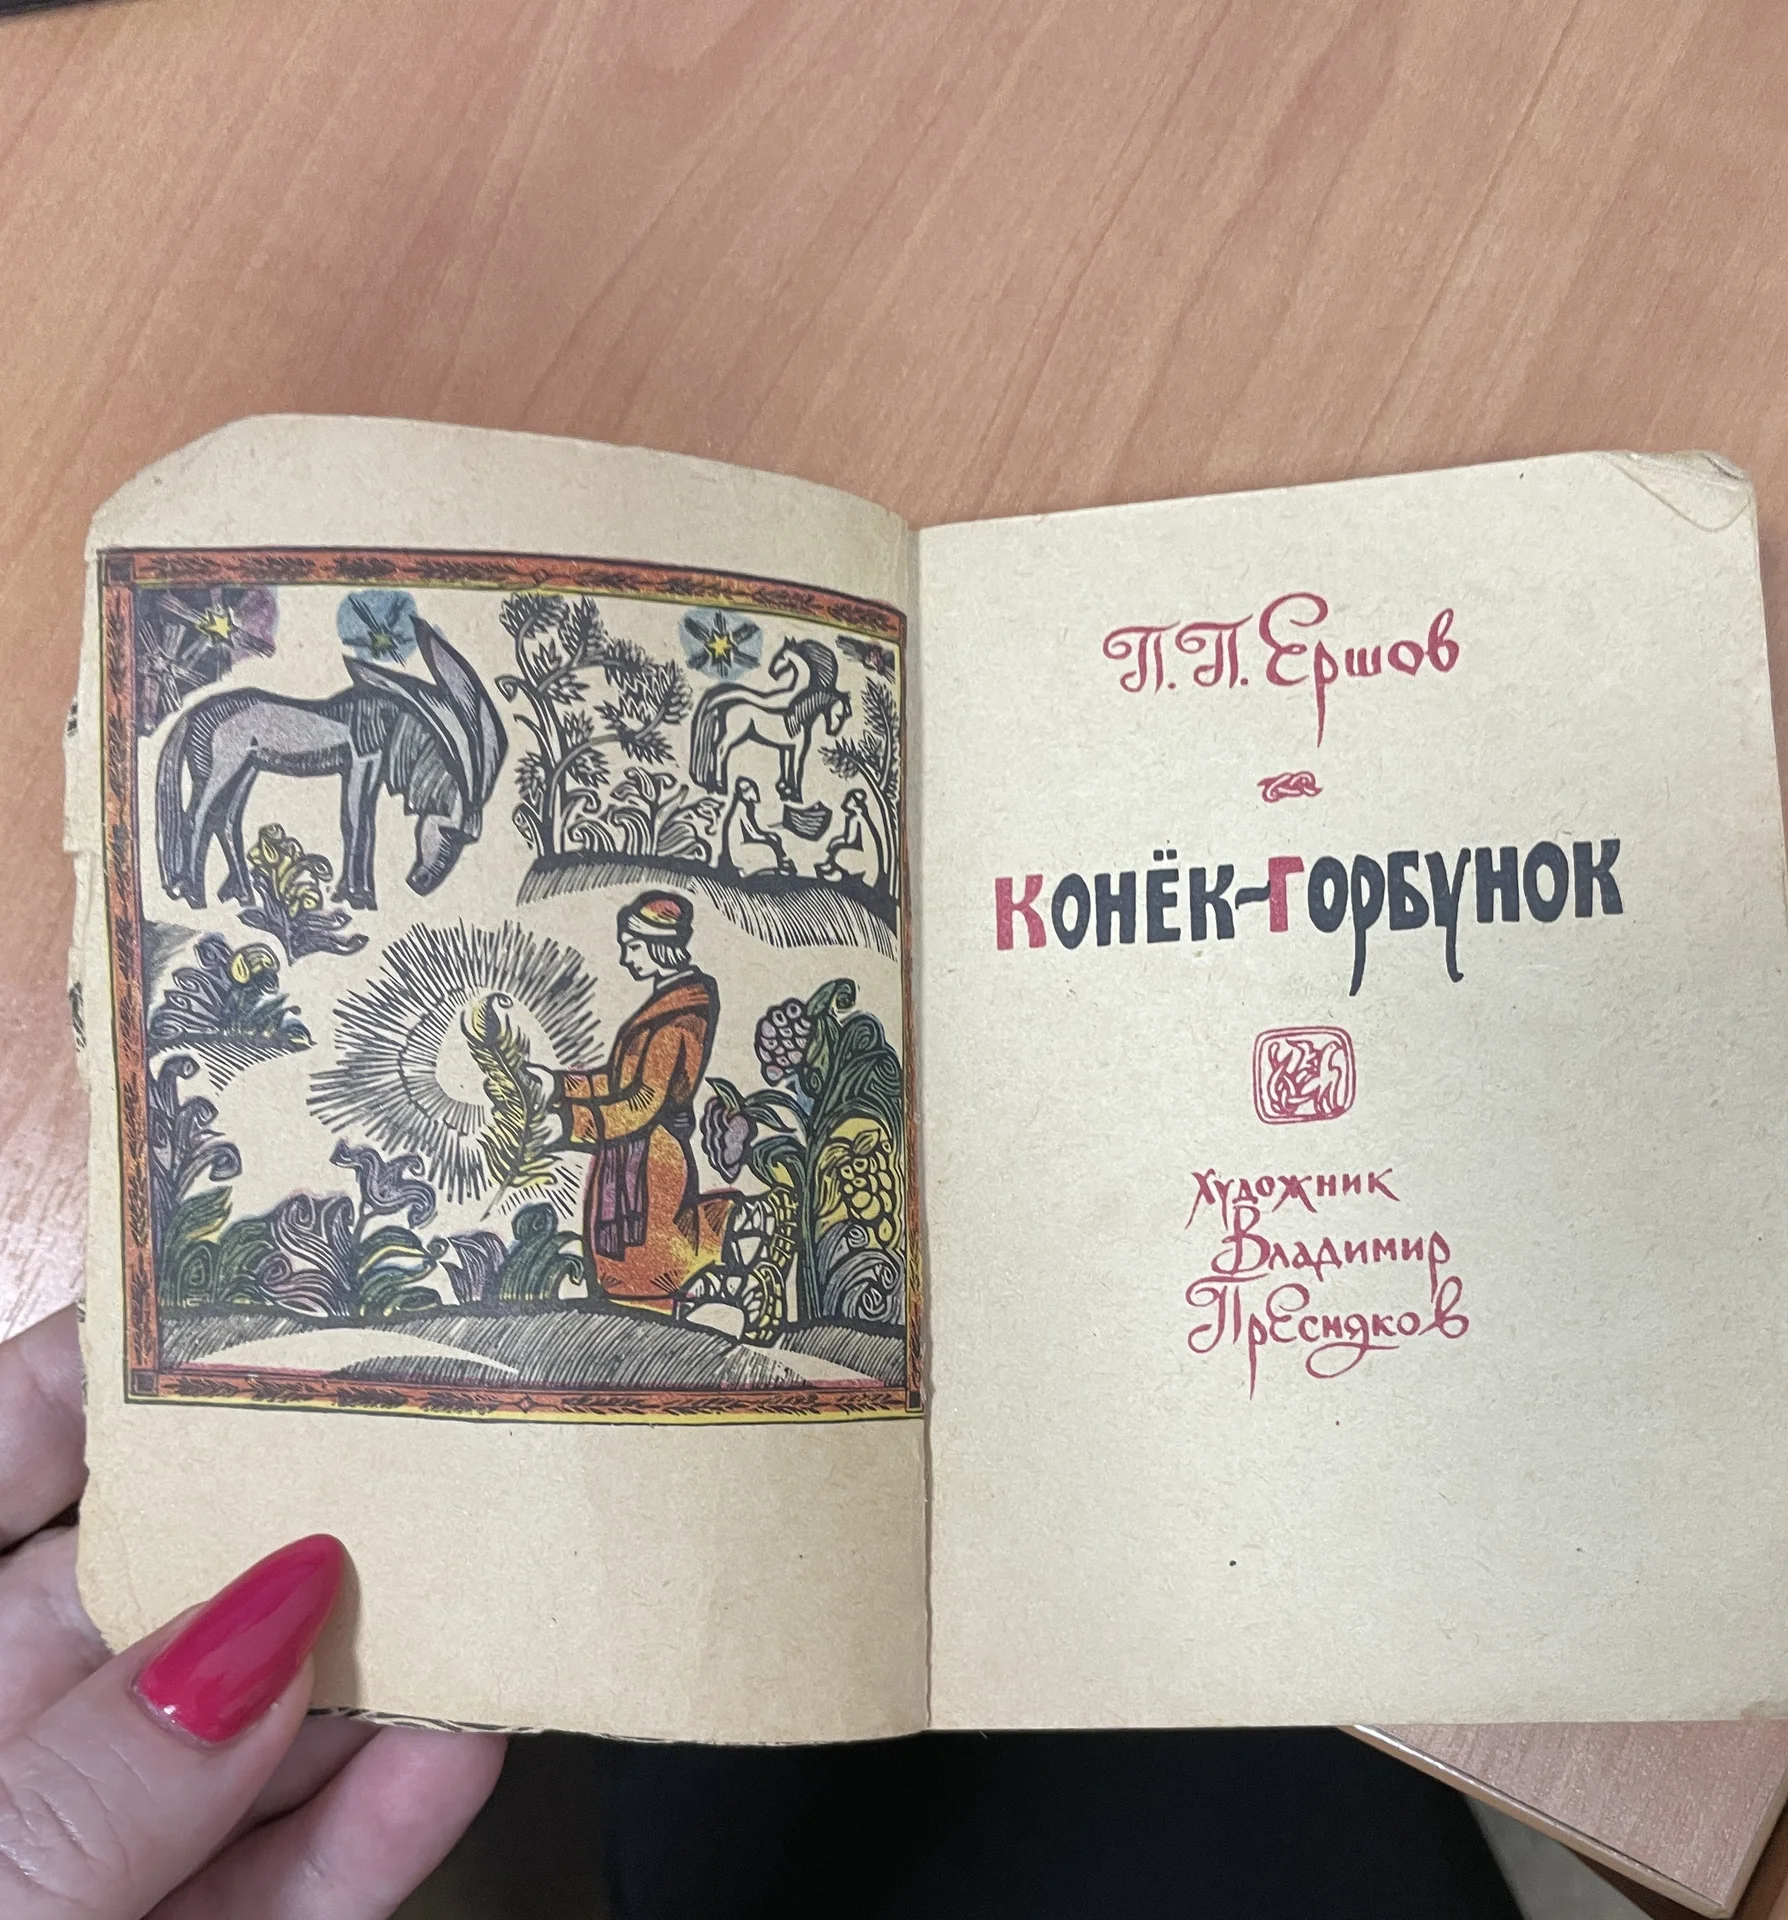 П.П. Ершов
КОНЁК-ГОРБУНОК
Художник
Владимир
Пресняков